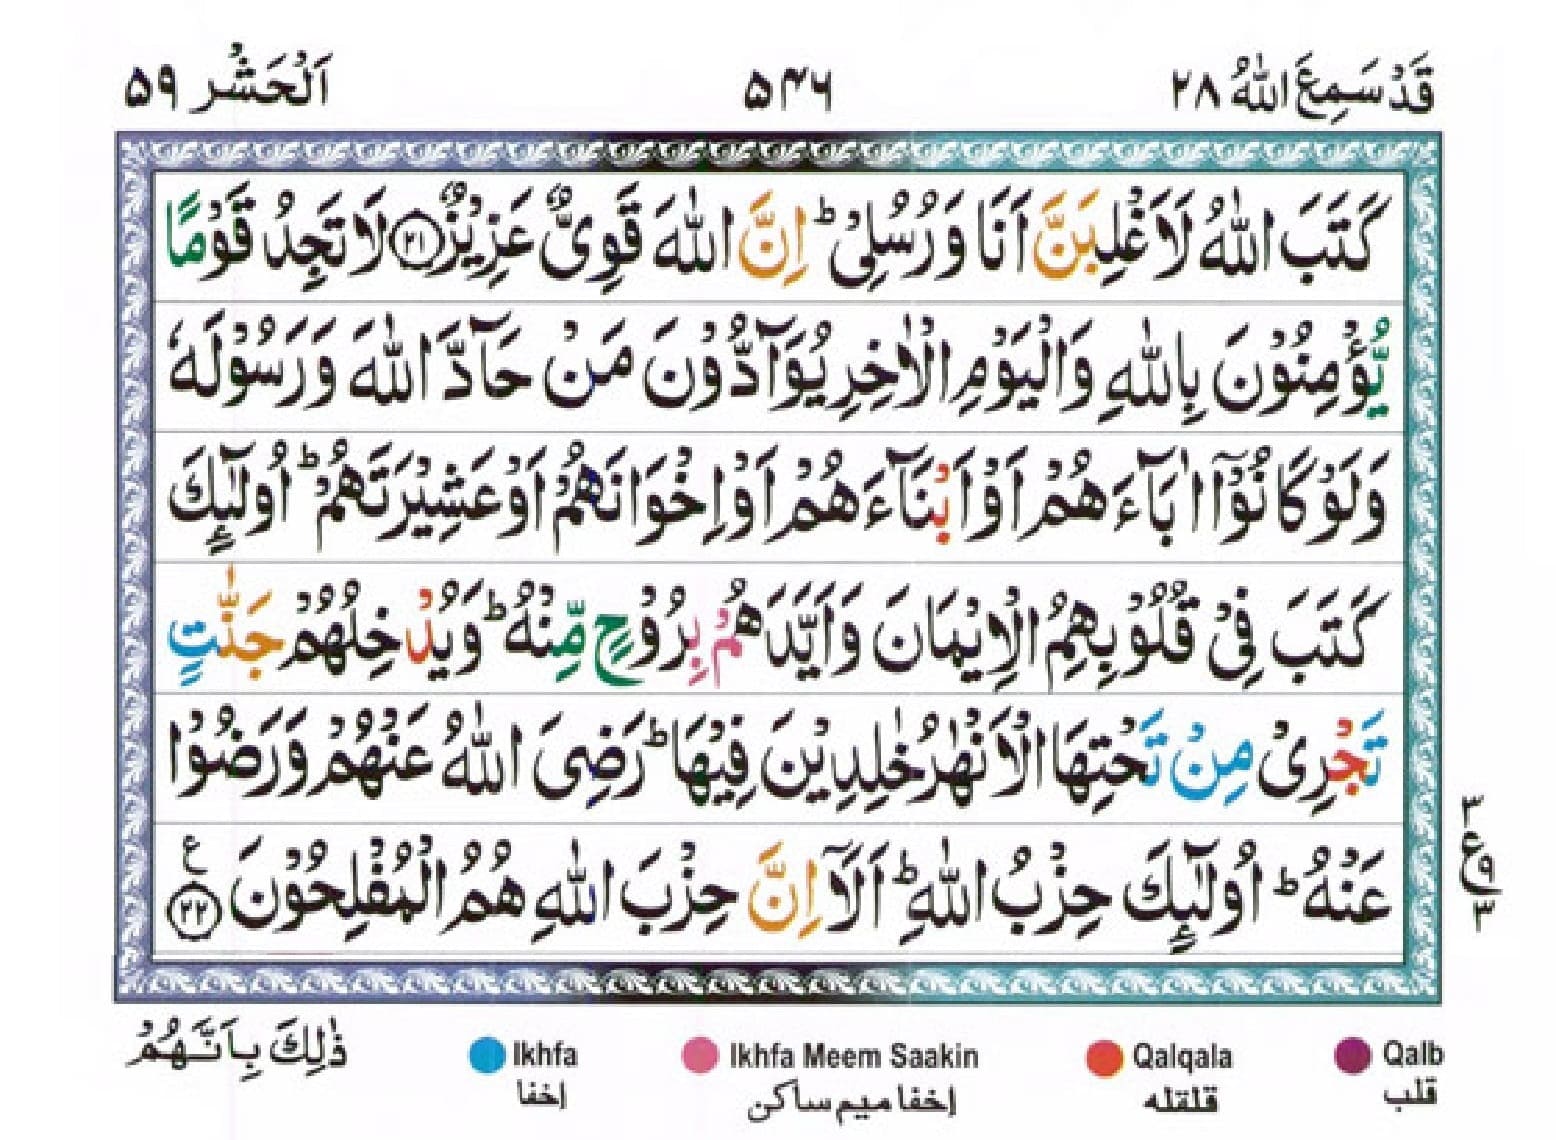 قَدْ سَمِعَ اللّٰهُ ۲۸
۵۴۶
اَلْحَشْر ۵۹
كَتَبَ اللّٰهُ لَاَغْلِبَنَّ اَنَا وَرُسُلِیْ ؕ اِنَّ اللّٰهَ قَوِیٌّ عَزِیْزٌ ﴿۲۱﴾ لَا تَجِدُ قَوْمًا
یُّؤْمِنُوْنَ بِاللّٰهِ وَالْیَوْمِ الْاٰخِرِ یُوَآدُّوْنَ مَنْ حَآدَّ اللّٰهَ وَرَسُوْلَهٗ
وَلَوْ كَانُوْۤا اٰبَآءَهُمْ اَوْ اَبْنَآءَهُمْ اَوْ اِخْوَانَهُمْ اَوْ عَشِیْرَتَهُمْ ؕ اُولٰٓئِكَ
كَتَبَ فِیْ قُلُوْبِهِمُ الْاِیْمَانَ وَاَیَّدَهُمْ بِرُوْحٍ مِّنْهُ ؕ وَیُدْخِلُهُمْ جَنّٰتٍ
تَجْرِیْ مِنْ تَحْتِهَا الْاَنْهٰرُ خٰلِدِیْنَ فِیْهَا ؕ رَضِیَ اللّٰهُ عَنْهُمْ وَرَضُوْا
عَنْهُ ؕ اُولٰٓئِكَ حِزْبُ اللّٰهِ ؕ اَلَاۤ اِنَّ حِزْبَ اللّٰهِ هُمُ الْمُفْلِحُوْنَ ﴿۲۲﴾ ع
۳
ع ۹
۳
ذٰلِكَ بِاَنَّهُمْ
Ikhfa
إخفا
Ikhfa Meem Saakin
إخفا میم ساکن
Qalqala
قلقله
Qalb
قلب